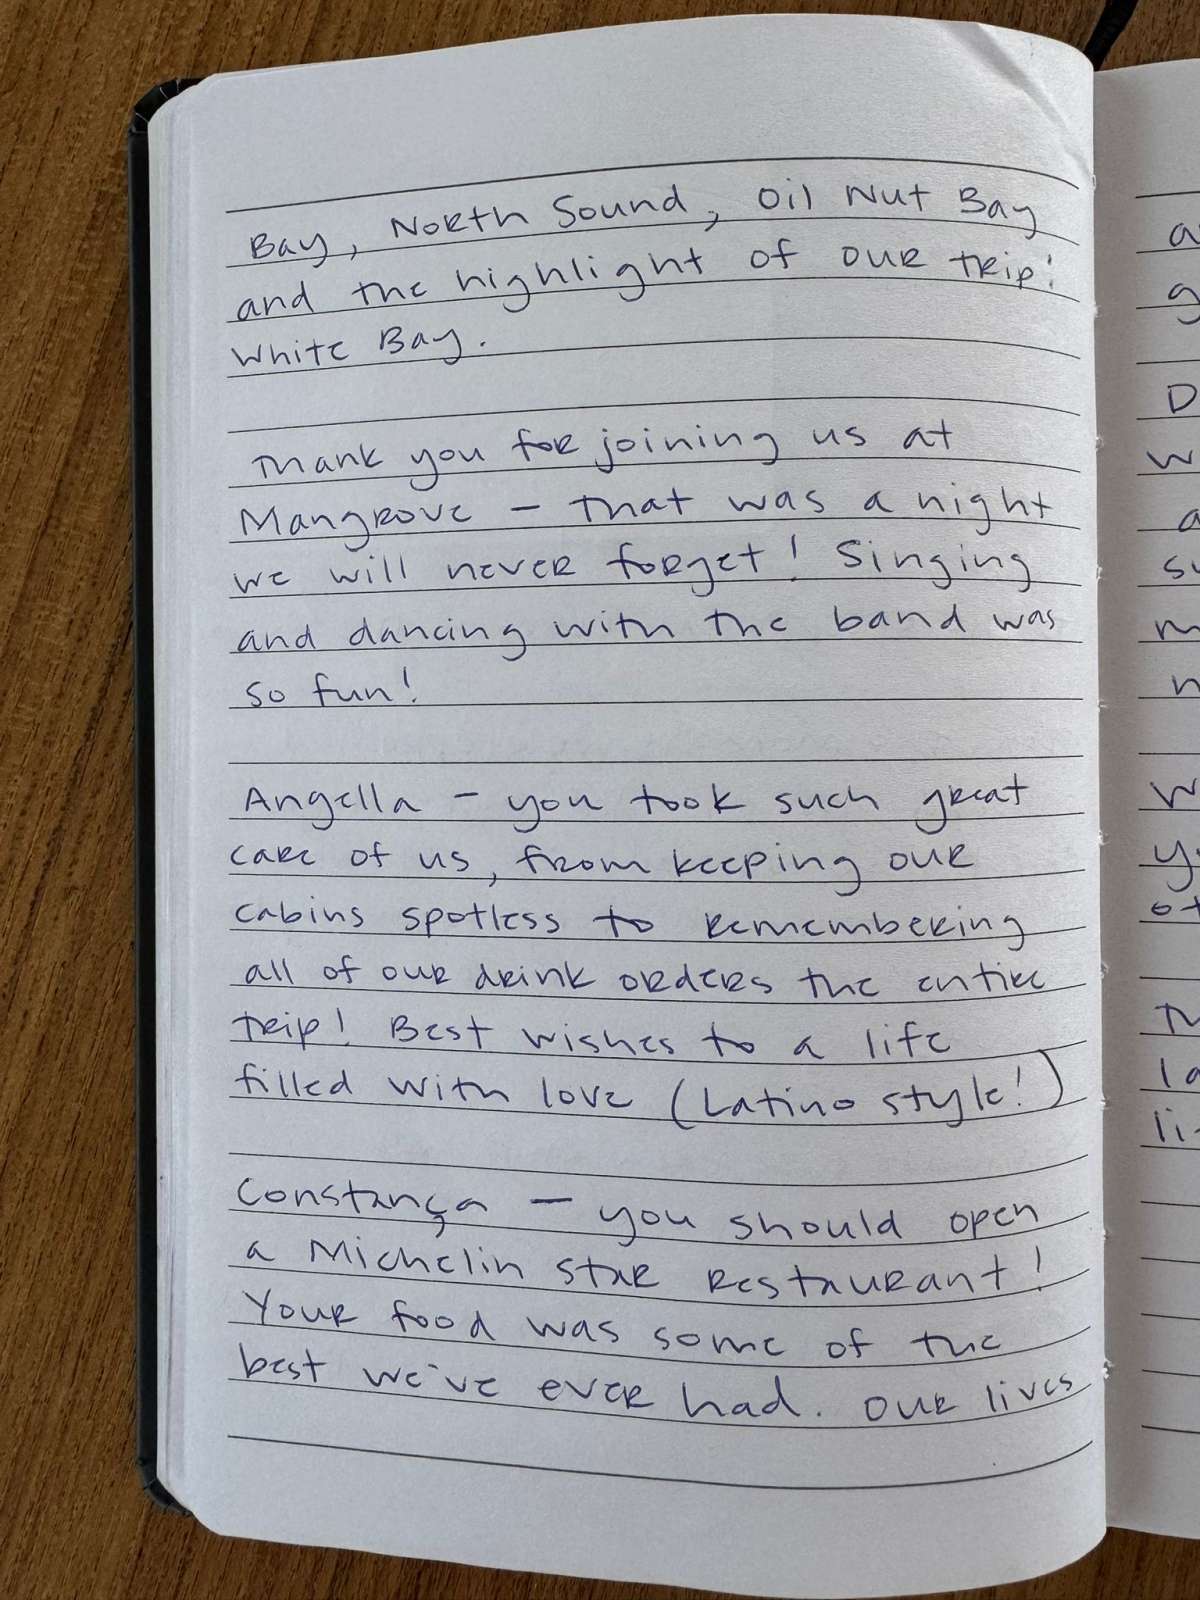 Bay, North Sound, Oil Nut Bay
and the highlight of our trip:
White Bay.
Thank you for joining us at
Mangrove - that was a night
we will never forget! Singing
and dancing with the band was
so fun!
Angella - you took such great
care of us, from keeping our
cabins spotless to remembering
all of our drink orders the entire
trip! Best wishes to a life
filled with love (Latino style!)
Constança - you should open
a Michelin star restaurant!
Your food was some of the
best we've ever had. Our lives